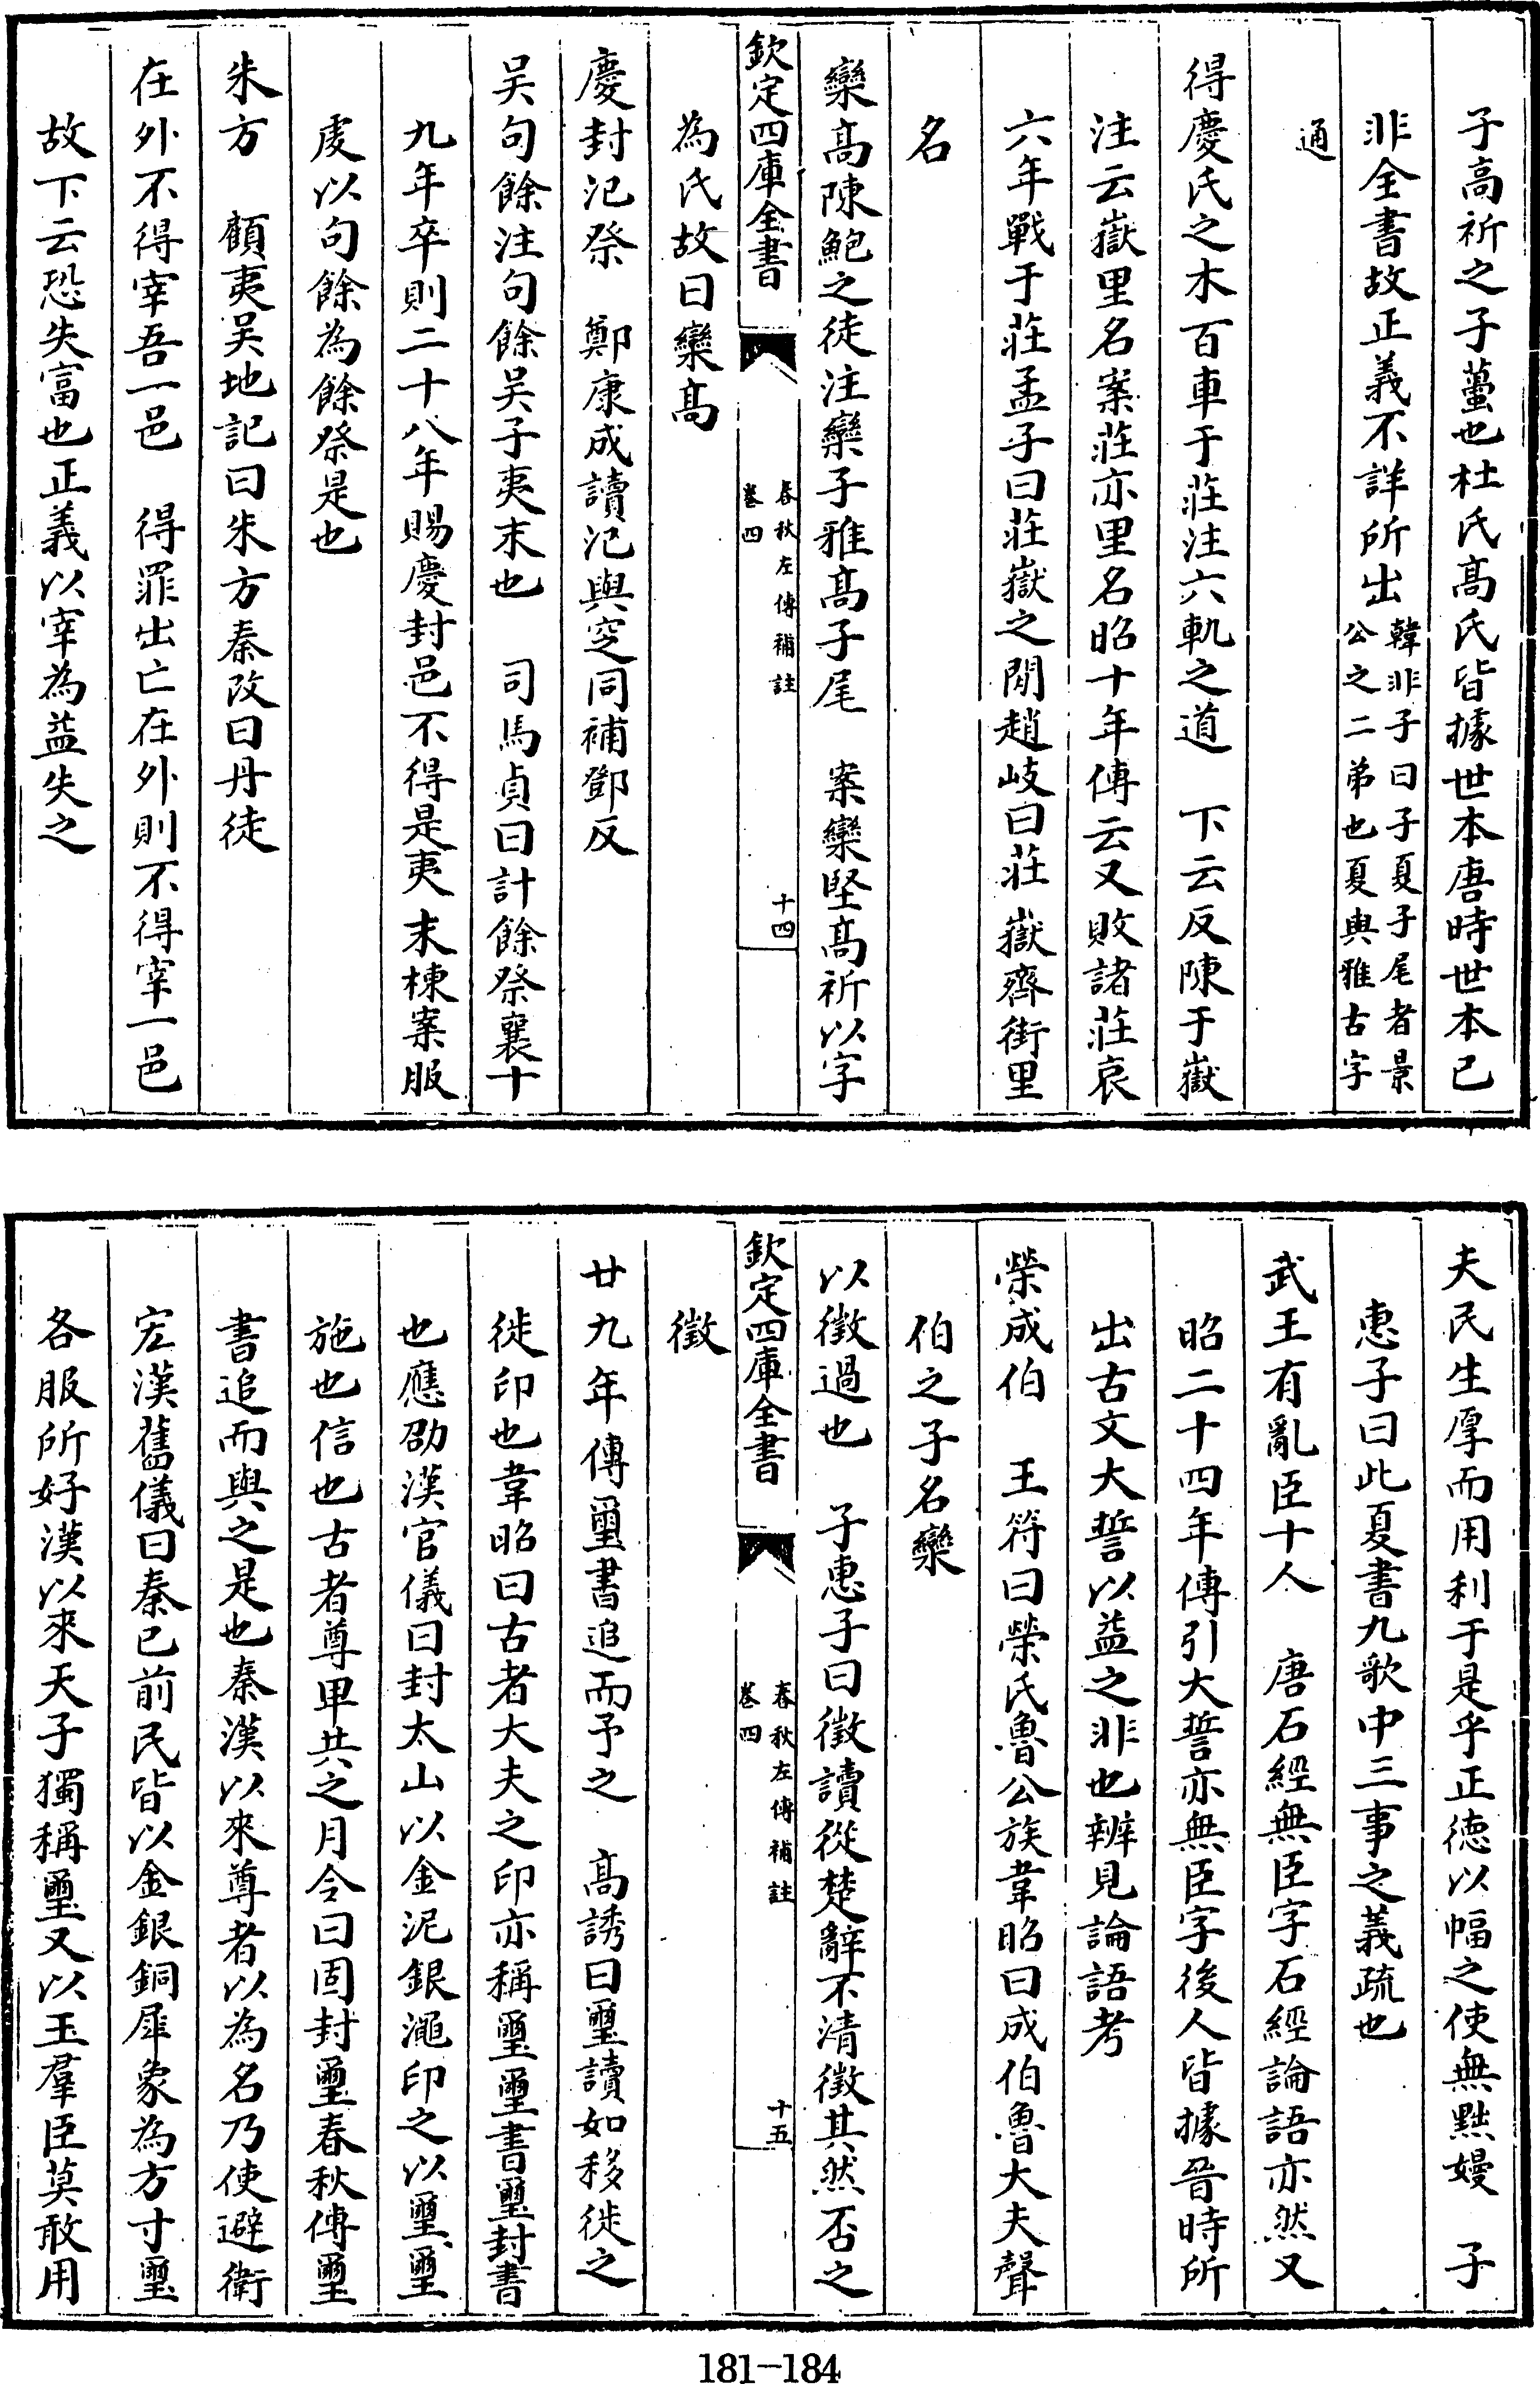 子高祈之子蠆也杜氏高氏皆據世本唐時世本已
非全書故正義不詳所出韓非子曰子夏子尾者景
公之二弟也夏與雅古字
通
得慶氏之木百車于莊注六軌之道　下云反陳于嶽
注云嶽里名案莊亦里名昭十年傳云又敗諸莊哀
六年戰于莊孟子曰莊嶽之閒趙岐曰莊嶽齊街里
名
欒高陳鮑之徒注欒子雅高子尾　案欒堅高祈以字
欽定四庫全書
春秋左傳補註
卷四
十四
為氏故曰欒高
慶封氾祭　鄭康成讀氾與窆同補鄧反
吳句餘注句餘吳子夷末也　司馬貞曰計餘祭襄十
九年卒則二十八年賜慶封邑不得是夷末棟案服
虔以句餘為餘祭是也
朱方　顧夷吳地記曰朱方秦改曰丹徒
在外不得宰吾一邑　得罪出亡在外則不得宰一邑
故下云恐失富也正義以宰為益失之
夫民生厚而用利于是乎正徳以幅之使無黜嫚　子
惠子曰此夏書九歌中三事之義疏也
武王有亂臣十人　唐石經無臣字石經論語亦然又
昭二十四年傳引大誓亦無臣字後人皆據晉時所
出古文大誓以益之非也辨見論語考
榮成伯　王符曰榮氏魯公族韋昭曰成伯魯大夫聲
伯之子名欒
以徵過也　子惠子曰徵讀從楚辭不清徵其然否之
欽定四庫全書
春秋左傳補註
卷四
十五
徵
廿九年傳璽書追而予之　高誘曰璽讀如移徙之
徙印也韋昭曰古者大夫之印亦稱璽璽書璽封書
也應劭漢官儀曰封太山以金泥銀繩印之以璽璽
施也信也古者尊卑共之月令曰固封璽春秋傳璽
書追而與之是也秦漢以來尊者以為名乃使避衛
宏漢舊儀曰秦已前民皆以金銀銅犀象為方寸璽
各服所好漢以來天子獨稱璽又以玉羣臣莫敢用
181-184